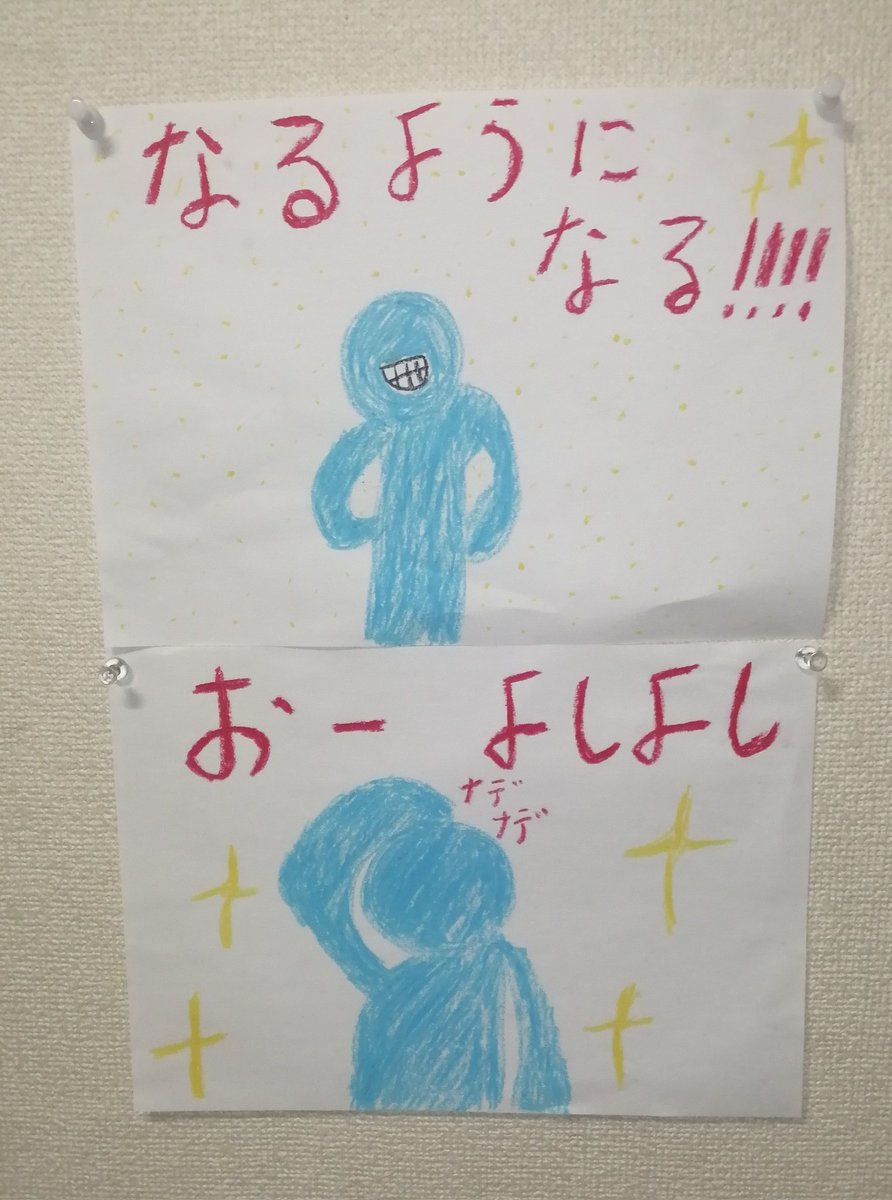 なるように
なる!!!!
おー よしよし
ナデ
ナデ